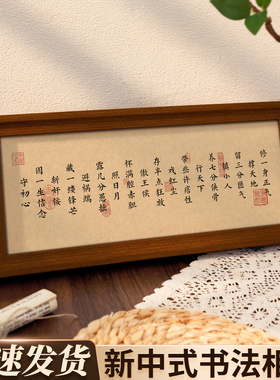 修一身正气
撑天地
留三分匪气
镇小人
养七分侠骨
行天下
带些许痞性
戏红尘
存半点狂放
傲王侯
怀满腔赤胆
照日月
露几分愚拙
避祸端
藏一缕锋芒
斩奸佞
固一生信念
守初心
速发货
新中式书法相